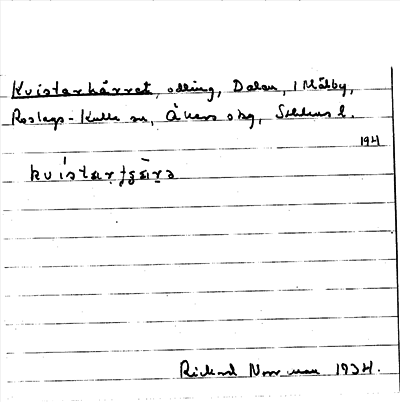 Kvistarkärret, odling, Dalen, 1 Målby,
Roslags-Kulla sn, Åkers skg, Sthlms l.
194
Rickard Norrman 1934.